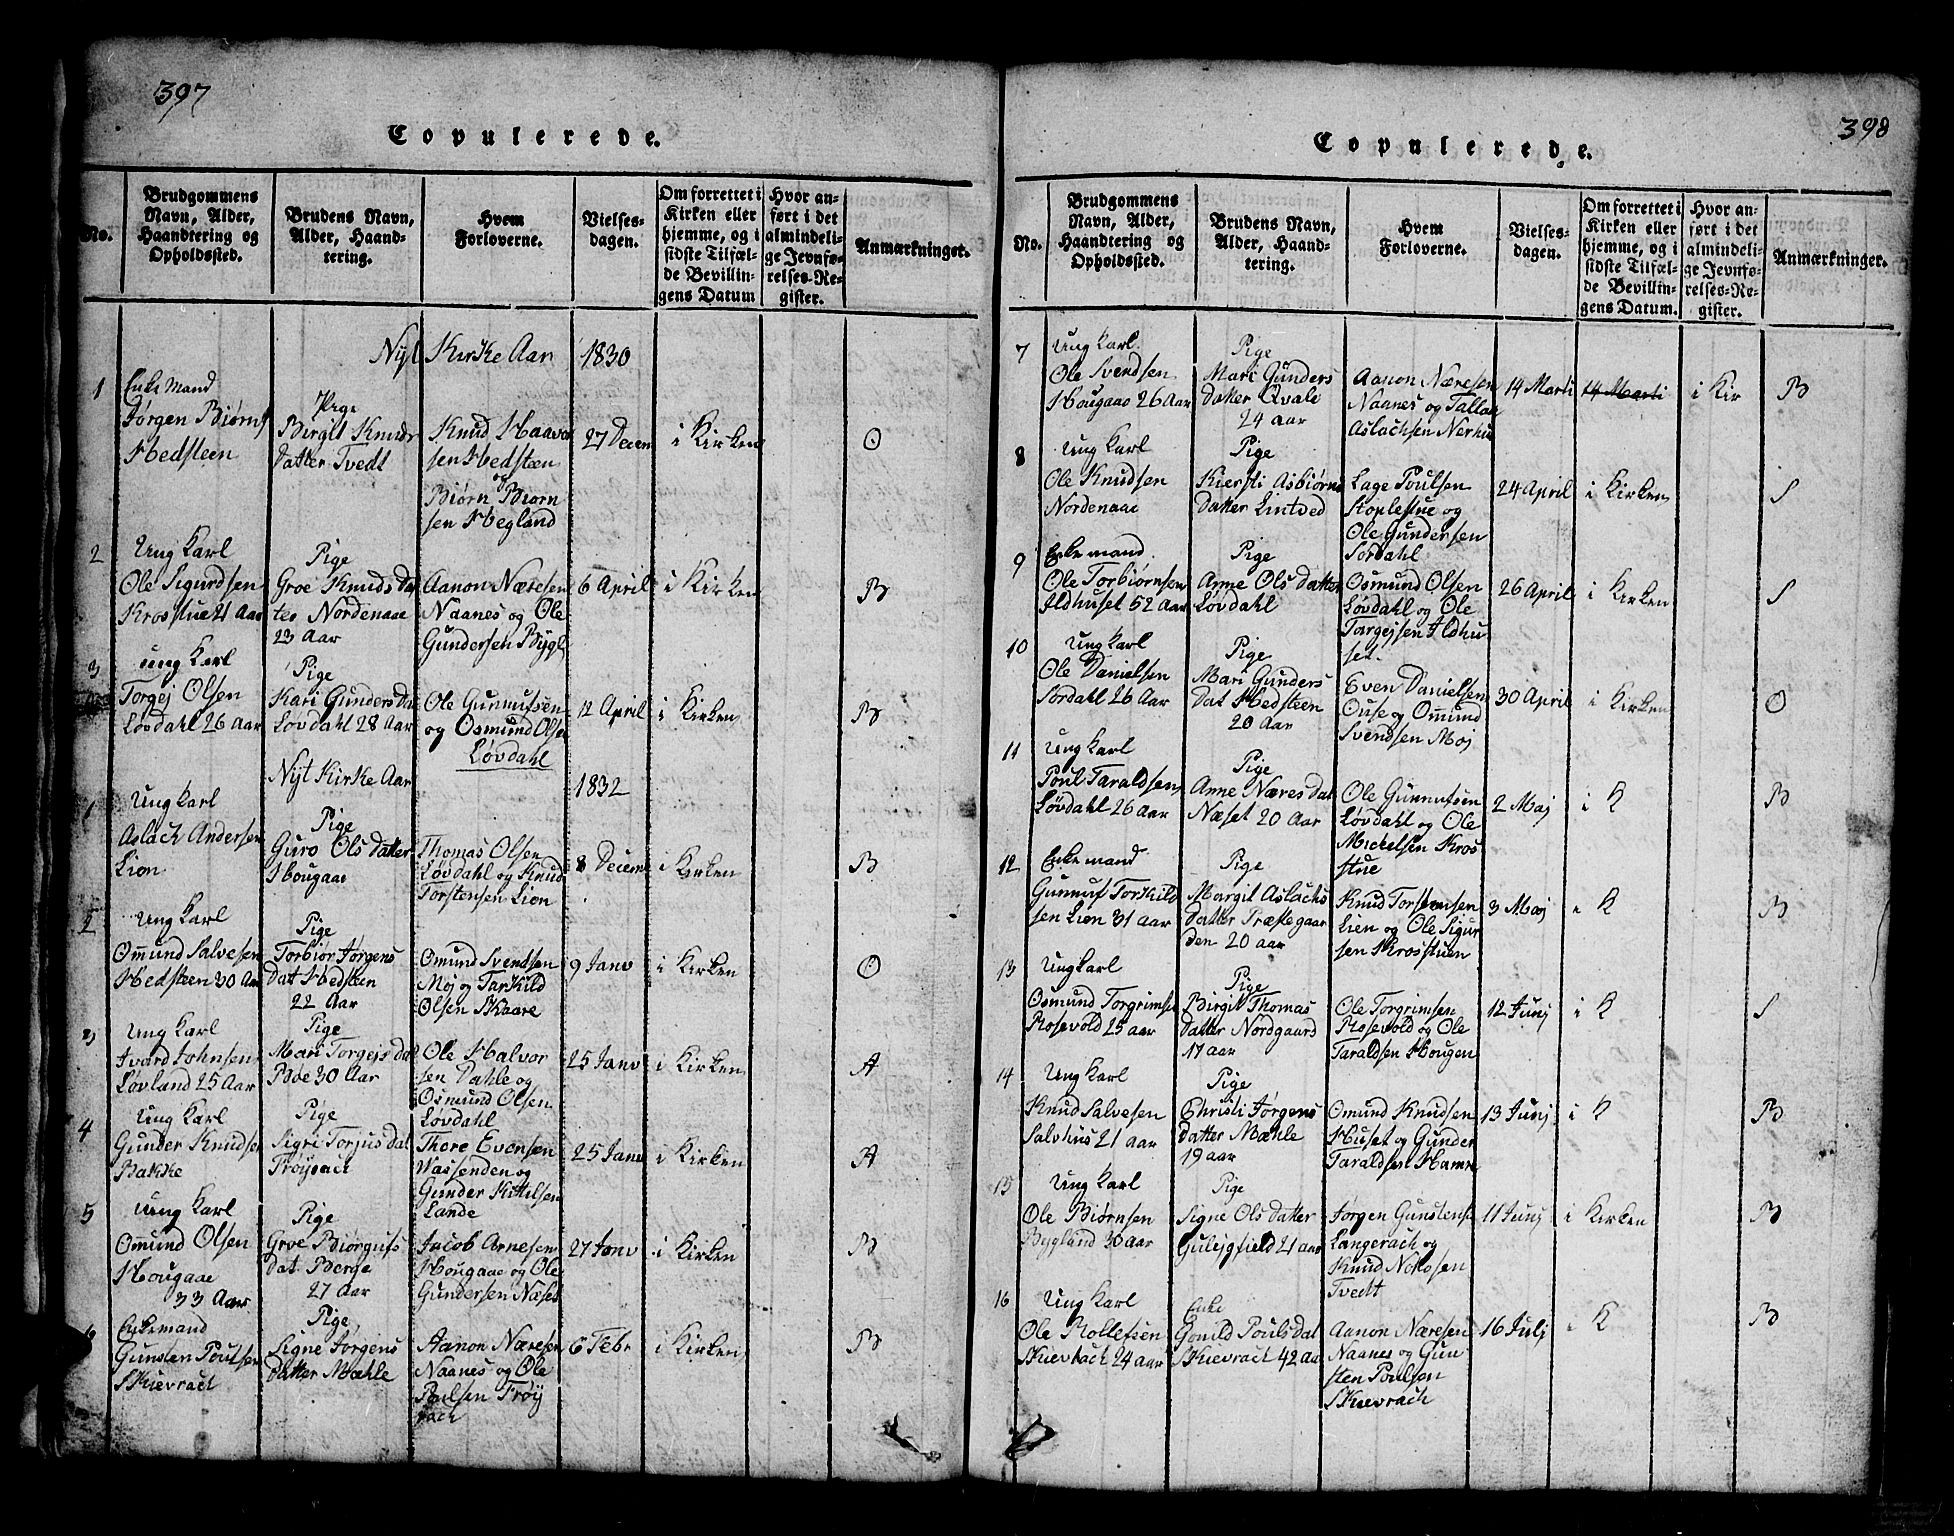 397
Copulerede.
No.
Brudgommens
Navn, Alder,
Haandtering og
Opholdssted.
Brudens Navn,
Alder, Haand-
tering.
Hvem
Forloverne.
Vielses-
dagen.
Om forrettet i
Kirken eller
hjemme, og i
sidste Tilfæl-
de Bevillin-
gens Datum
Hvor an-
ført i det
almindeli-
ge Jevnfø-
relses-Re-
gister.
Anmærkninger.
Nyt Kirke Aar 1830
1
Enke Mand
Jørgen Biørns
Hedsteen
Pige
Birgit Knuds
Datter Tvedt
Knud Haavor
sen Hedsteen
og
Biørn Biørn
sen Hegland
27 Decem
i Kirken
O
2
Ung Karl
Ole Sigurdsen
Krostue 21 Aar
Pige
Groe Knuds Dat
ter Nordenaae
23 Aar
Aanon Næresen
Naanes og Ole
Gundersen Bygl
6 April
i Kirken
B
3
ung Karl
Torgej Olsen
Løvdahl 26 Aar
Pige
Kari Gunders Da
Løvdahl 28 Aar
Ole Gunnufsen
og Osmund Olsen
Løvdahl
12 April
i Kirken
B
Nyt Kirke Aar 1832
1
Ung Karl
Aslach Andersen
Lion
Pige
Guro Ols Datter
Hougaae
Thomas Olsen
Løvdahl og Knud
Torstensen Lion
8 Decem
i Kirken
B
2
Ung Karl
Omund Salvesen
Hedsteen 30 Aar
Pige
Torbiør Jørgens
Dat Hedsteen
22 Aar
Omund Svendsen
Moj og Tarkild
Olsen Skaare
9 Janv
i Kirken
O
3
Ung Karl
Ivard Johnsen
Løvland 25 Aar
Pige
Mari Torgejs Dat
Boe 30 Aar
Ole Halvor
sen Dahle og
Osmund Olsen
Løvdahl
25 Janv
i Kirken
A
4
Ung Karl
Gunder Knudsen
Bakke
Pige
Sigri Torjus Dat
Frøysach
Thore Evensen
Wassenden og
Gunder Kittilsen
Lande
25 Janv
i Kirken
A
5
Ung Karl
Omund Olsen
Hougaae
33 Aar
Pige
Groe Biørgufs
Dat. Berge
27 Aar
Jacob Arnesen
Hougaae og Ole
Gundersen Næset
27 Janv
i Kirken
B
6
Enkemand
Gunsten Poulsen
Skievrach
Pige
Signe Jørgens
Datter Mæhle
Aanon Næresen
Naanes og Ole
Poulsen Frøy
rach
6 Febr
i Kirken
B
398
Copulerede.
No.
Brudgommens
Navn, Alder,
Haandtering og
Opholdssted.
Brudens Navn,
Alder, Haand-
tering.
Hvem
Forloverne.
Vielses-
dagen.
Om forrettet i
Kirken eller
hjemme, og i
sidste Tilfæl-
de Bevillin-
gens Datum.
Hvor an-
ført i det
almindeli-
ge Jevnfø-
relses-Re-
gister.
Anmærkninger.
7
Ung Karl
Ole Svendsen
Hougaae 26 Aar
Pige
Mari Gunders
Datter Qvale
24 aar
Aanon Næresen
Naanes og Tallak
Aslachsen Nerhu
14 Marti
14 Marti
i Kir
B
8
Ung Karl
Ole Knudsen
Nordenaae
Pige
Kiersti Asbiørns
Datter Lintved
Lage Poulsen
Stoplestue og
Ole Gundersen
Sordahl
24 April
i Kirken
S
9
Enke mand
Ole Torbiørnsen
Ildhuset 52 Aar
Pige
Anne Ols Datter
Løvdahl
Osmund Olsen
Løvdahl og Ole
Torgejsen Ildhu
set.
26 April
i Kirken
S
10
Ung Karl
Ole Danielsen
Sordahl 26 Aar
Pige
Mari Gunders
Dat Hedsteen
20 Aar
Even Danielsen
Ouse og Omund
Svendsen Moj
30 April
i Kirken
O
11
Ung Karl
Poul Taraldsen
Løvdahl 26 aar
Pige
Anne Næres Dat
Næset 20 Aar
Ole Gunnufsen
Løvdahl og Ole
Mickelsen Kros
stue
2 Maj
i K
B
12
Enke mand
Gunnuf Torkild
sen Lien 31 aar
Pige
Margit Aslachs
Datter Træfegaar
den 20 aar
Knud Torstensen
Lien og Ole Sigur
sen Krosstuen
3 Maj
i K
B
13
Ung Karl
Osmund Torgrimse
Rosevold 25 aar
Pige
Birgit Thomas
Datter Nordgaard
17 aar
Ole Torgrimsen
Rosevold og Ole
Taraldsen Hougen
12 Junj
i K
S
14
Ung Karl
Knud Salvesen
Salvhus 21 aar
Pige
Christi Jørgens
Datter Mæhle
19 aar
Omund Knudsen
Huset og Gunder
Taraldsen Hamre
13 Junj
i K
B
15
Ung Karl
Ole Biørnsen
Bygland 30 aar
Pige
Signe Ols Datter
Gulejgfield 21 aar
Jørgen Gunstense
Langerach og
Knud Nerosen
Tvedt
11 Junj
i Kirken
B
16
Ung Karl
Ole Rollefsen
Skievrach 24 aar
Enke
Gonild Pouls Dat
Skievrach 42 aar
Aanon Næresen
Naanes og Gun
sten Poulsen
Skievrach
16 Julj
i K
B